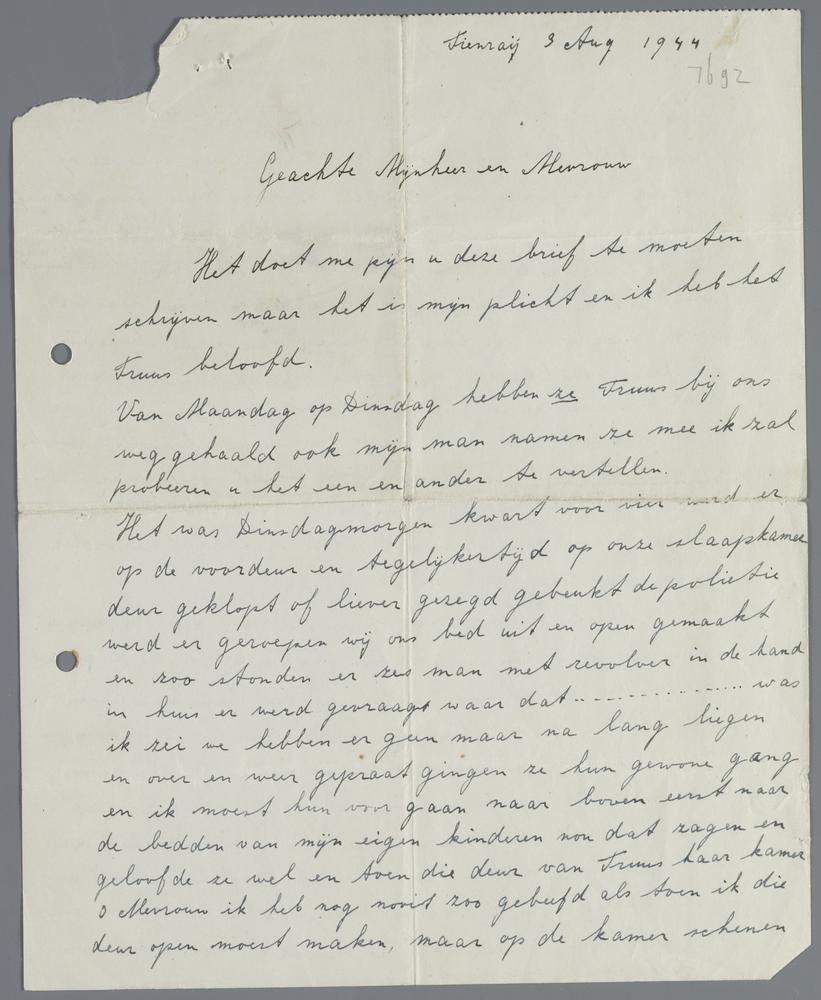 Tienraij 3 Aug 1944
7692
Geachte Mijnheer en Mevrouw
Het doet me pijn u deze brief te moeten
schrijven maar het is mijn plicht en ik heb het
Truus beloofd.
Van Maandag op Dinsdag hebben ze Truus bij ons
weg gehaald ook mijn man namen ze mee ik zal
probeeren u het een en ander te vertellen.
Het was Dinsdagmorgen kwart voor vier werd er
op de voordeur en tegelijkertijd op onze slaapkamer
deur geklopt of liever gezegd gebeukt de polietie
werd er geroepen wij ons bed uit en open gemaakt
en zoo stonden er zes man met revolver in de hand
in huis er werd gevraagt waar dat ................ was
ik zei we hebben er geen maar na lang liegen
en over en weer gepraat gingen ze hun gewone gang
en ik moest hun voor gaan naar boven eerst naar
de bedden van mijn eigen kinderen nou dat zagen en
geloofde ze wel en toen die deur van Truus haar kamer
O Mevrouw ik heb nog nooit zoo gebeefd als toen ik die
deur open moest maken, maar op de kamer schenen